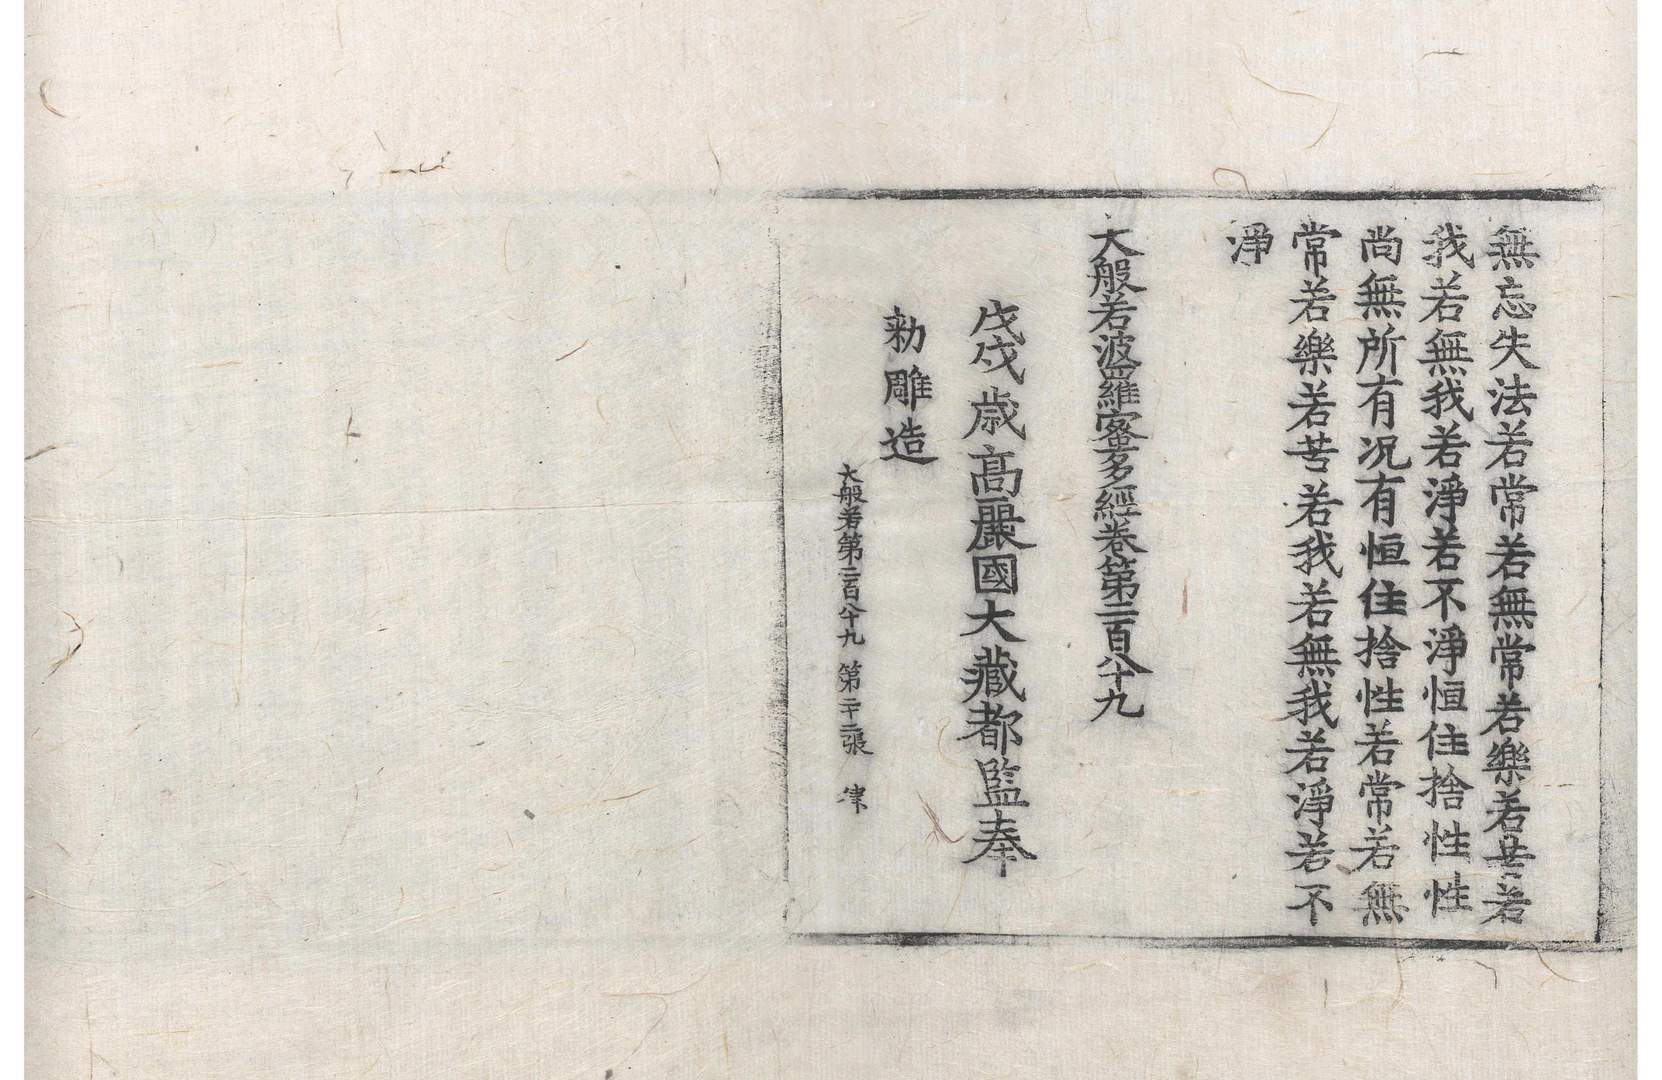 無忘失法若常若無常若樂若苦若
我若無我若淨若不淨恒住捨性性
尚無所有況有恒住捨性若常若無
常若樂若苦若我若無我若淨若不
淨
大般若波羅蜜多經卷第二百八十九
戊戌歲高麗國大藏都監奉
勅雕造
大般若第二百八十九 第二十二張